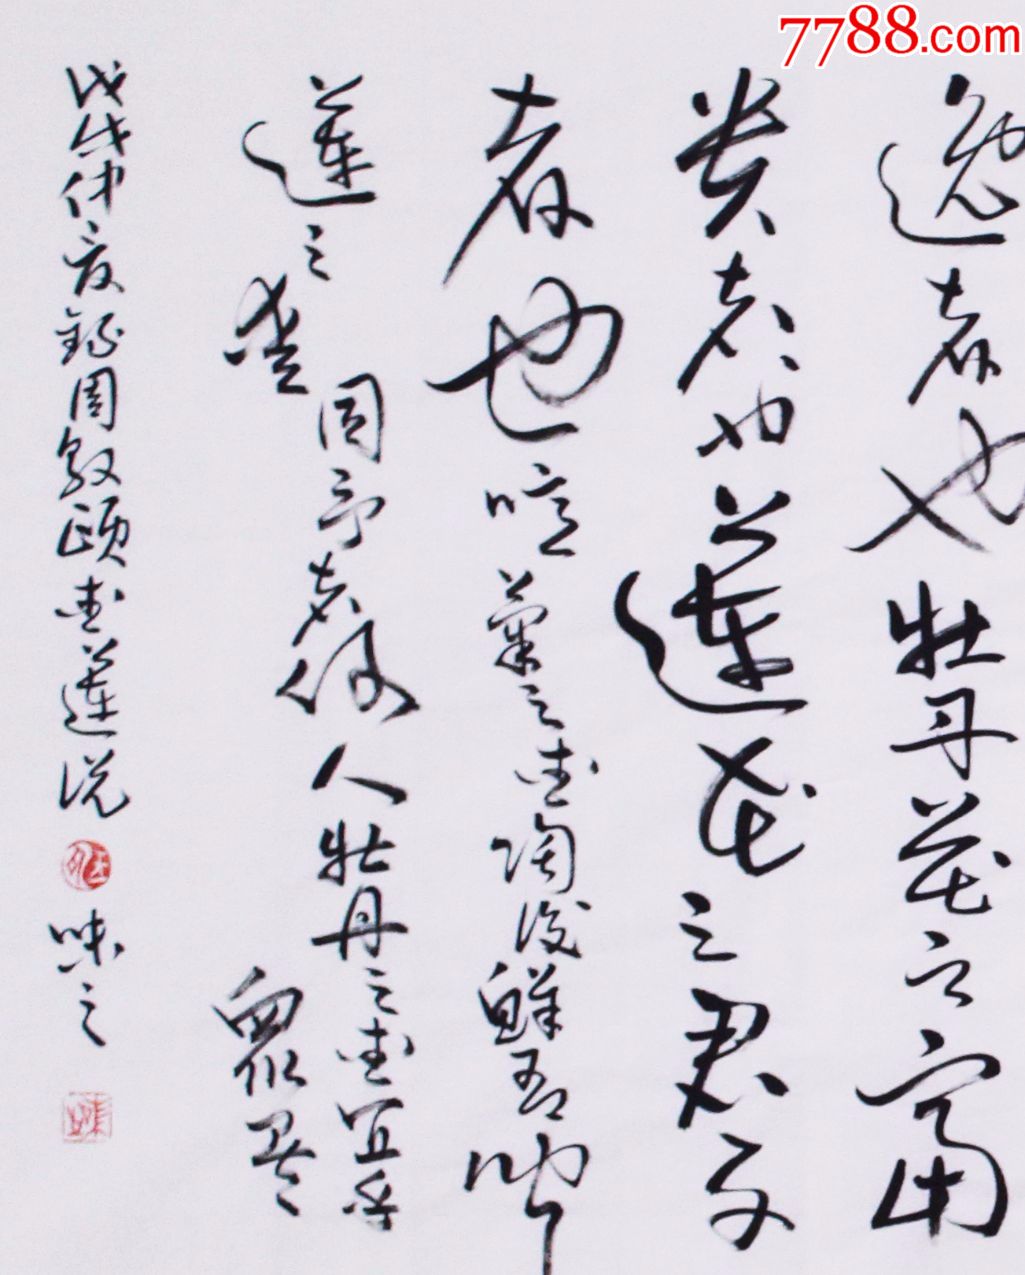 7788.com
逸者也牡丹花之富
贵者也莲花之君子
者也噫菊之爱陶后鲜有闻
莲之爱同予者何人牡丹之爱宜乎众矣
戊戌仲夏録周敦颐爱莲说
味之